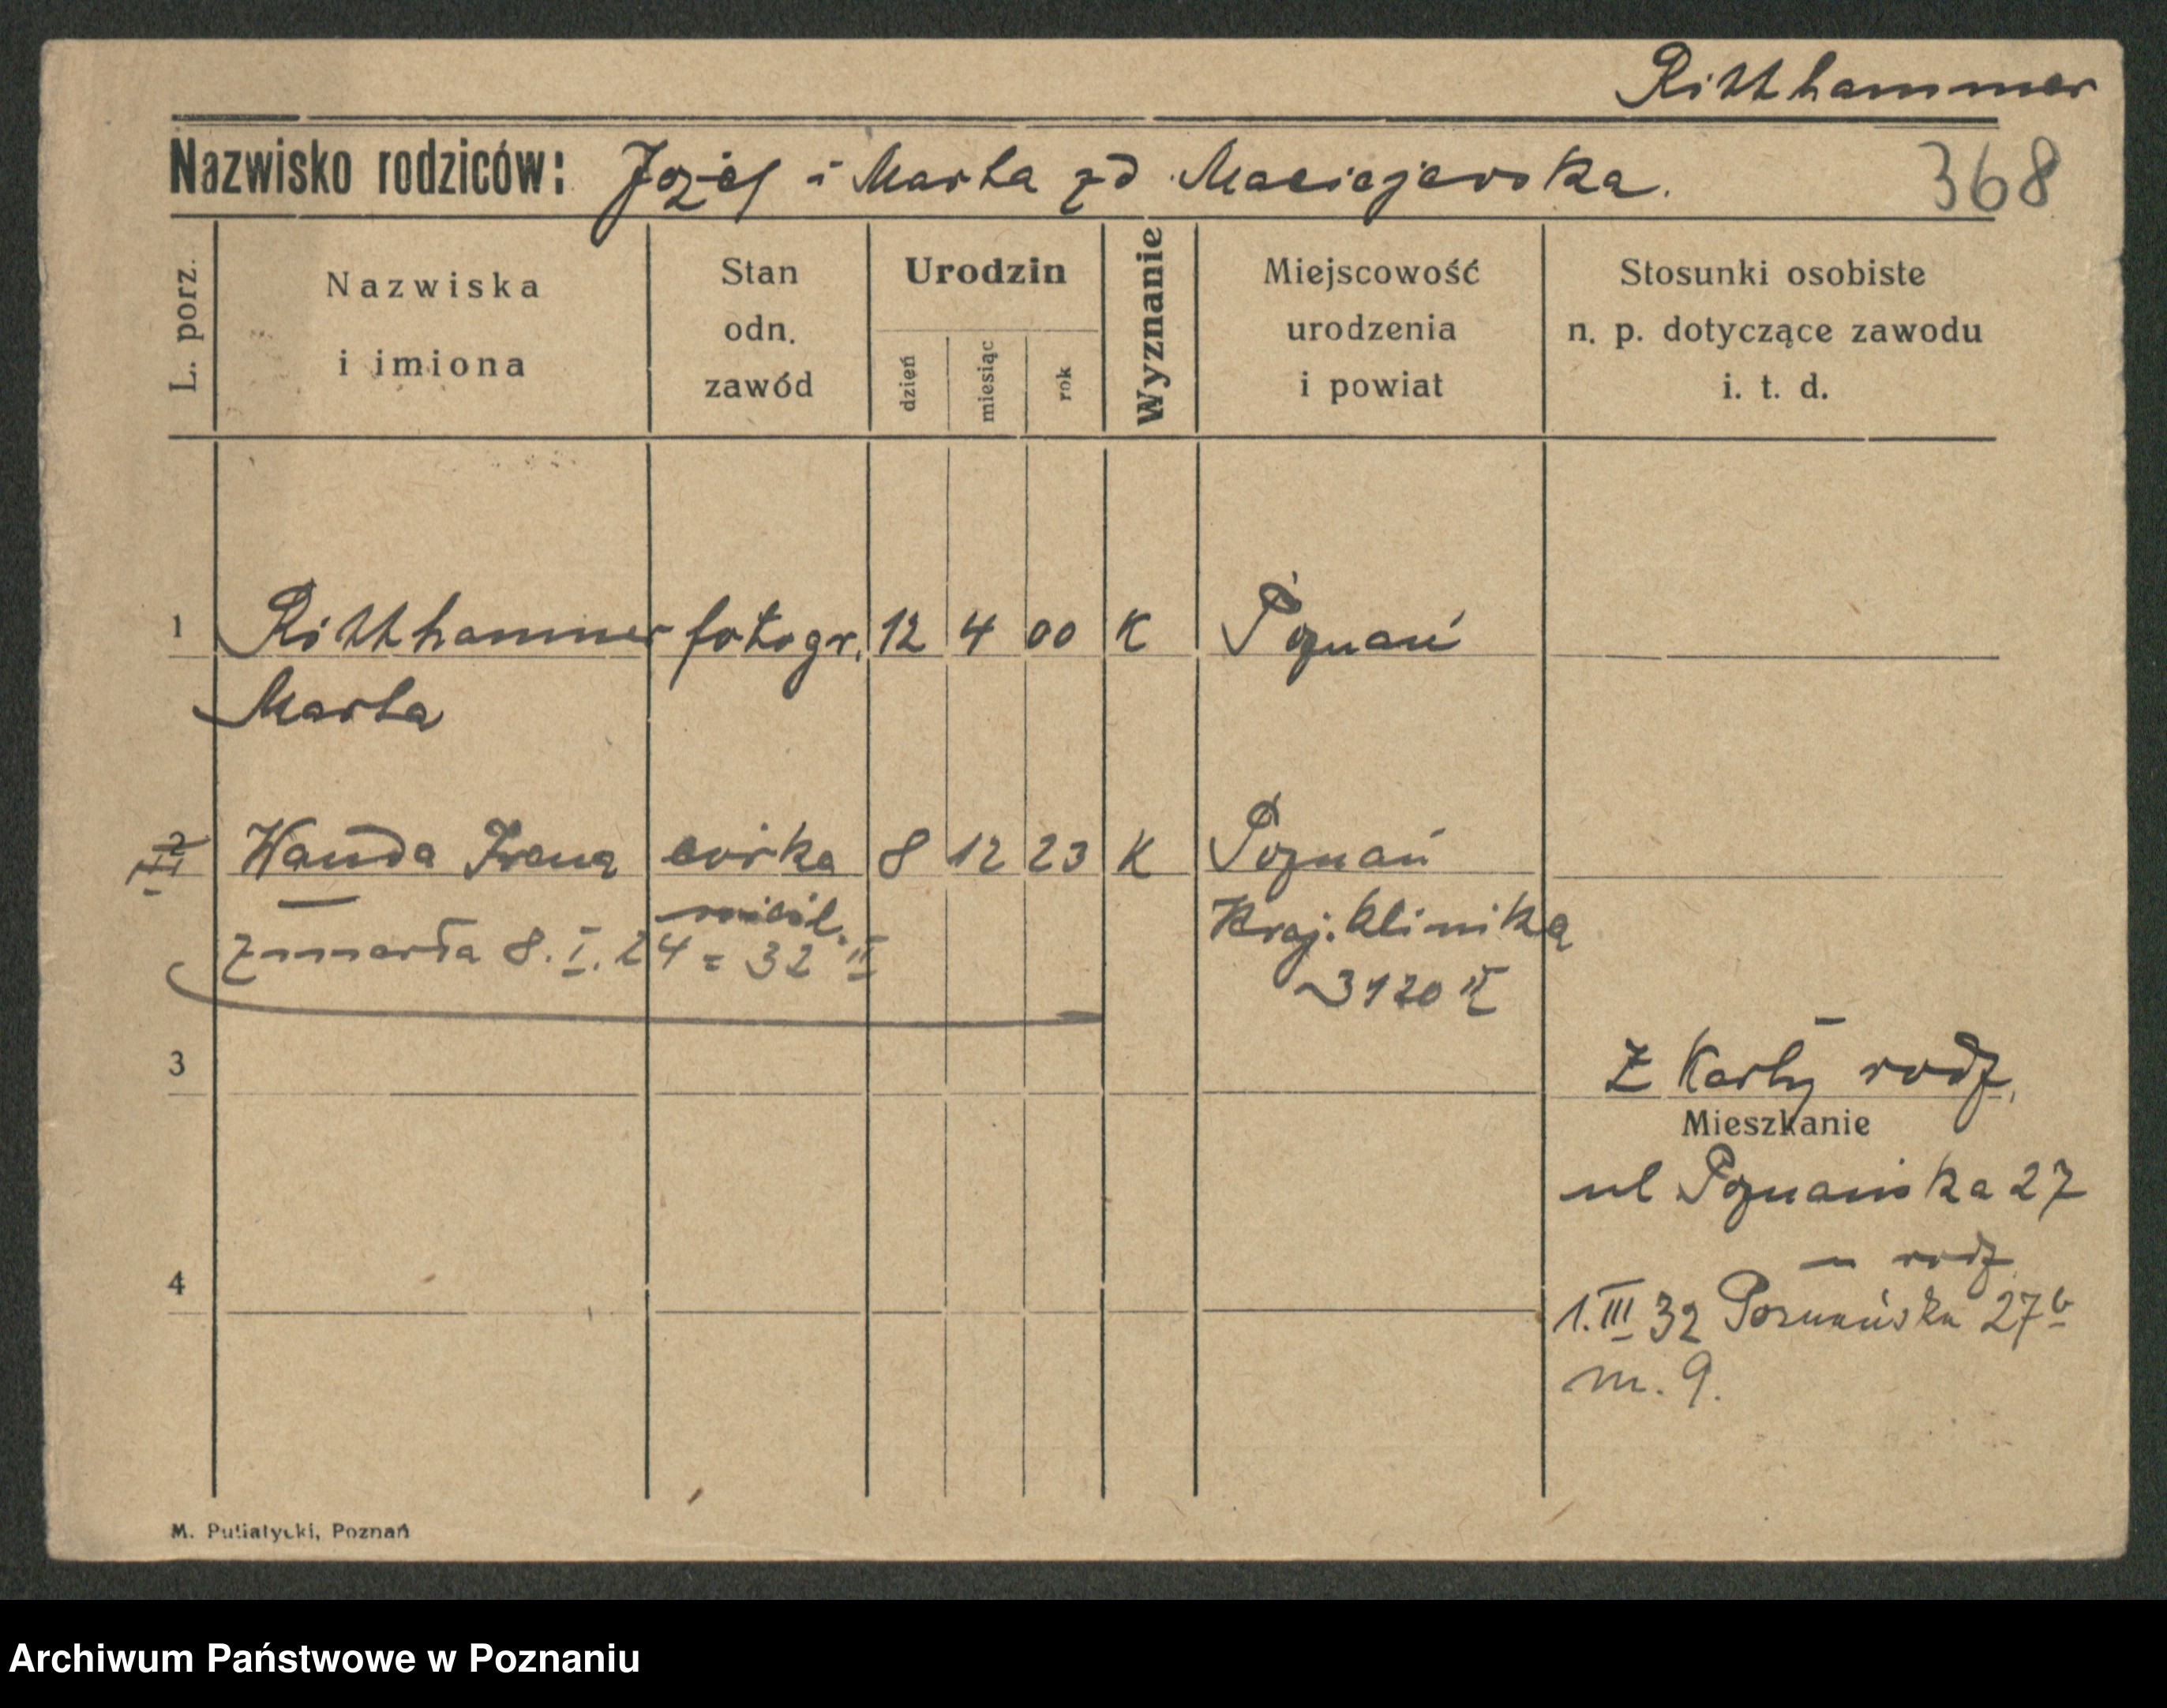 Ritthammer
Nazwisko rodziców: Józef i Marta zd Maciejewska.
368
L. porz.
Nazwiska
i imiona
Stan
odn.
zawód
Urodzin
dzień
miesiąc
rok
Wyznanie
Miejscowość
urodzenia
i powiat
Stosunki osobiste
n. p. dotyczące zawodu
i. t. d.
1 Ritthammer fotogr. 12 4 00 K Poznań
Marta
2 Wanda Irena córka 8 12 23 K Poznań
nieśl. Kraj. Klinika
zmarła 8. I. 24 = 32 II
3120 II
3
Z Karty rodz.
Mieszkanie
ul Poznańska 27
4
rodz
1. III 32 Poznańska 27b
m. 9.
M. Putiatycki, Poznań
Archiwum Państwowe w Poznaniu